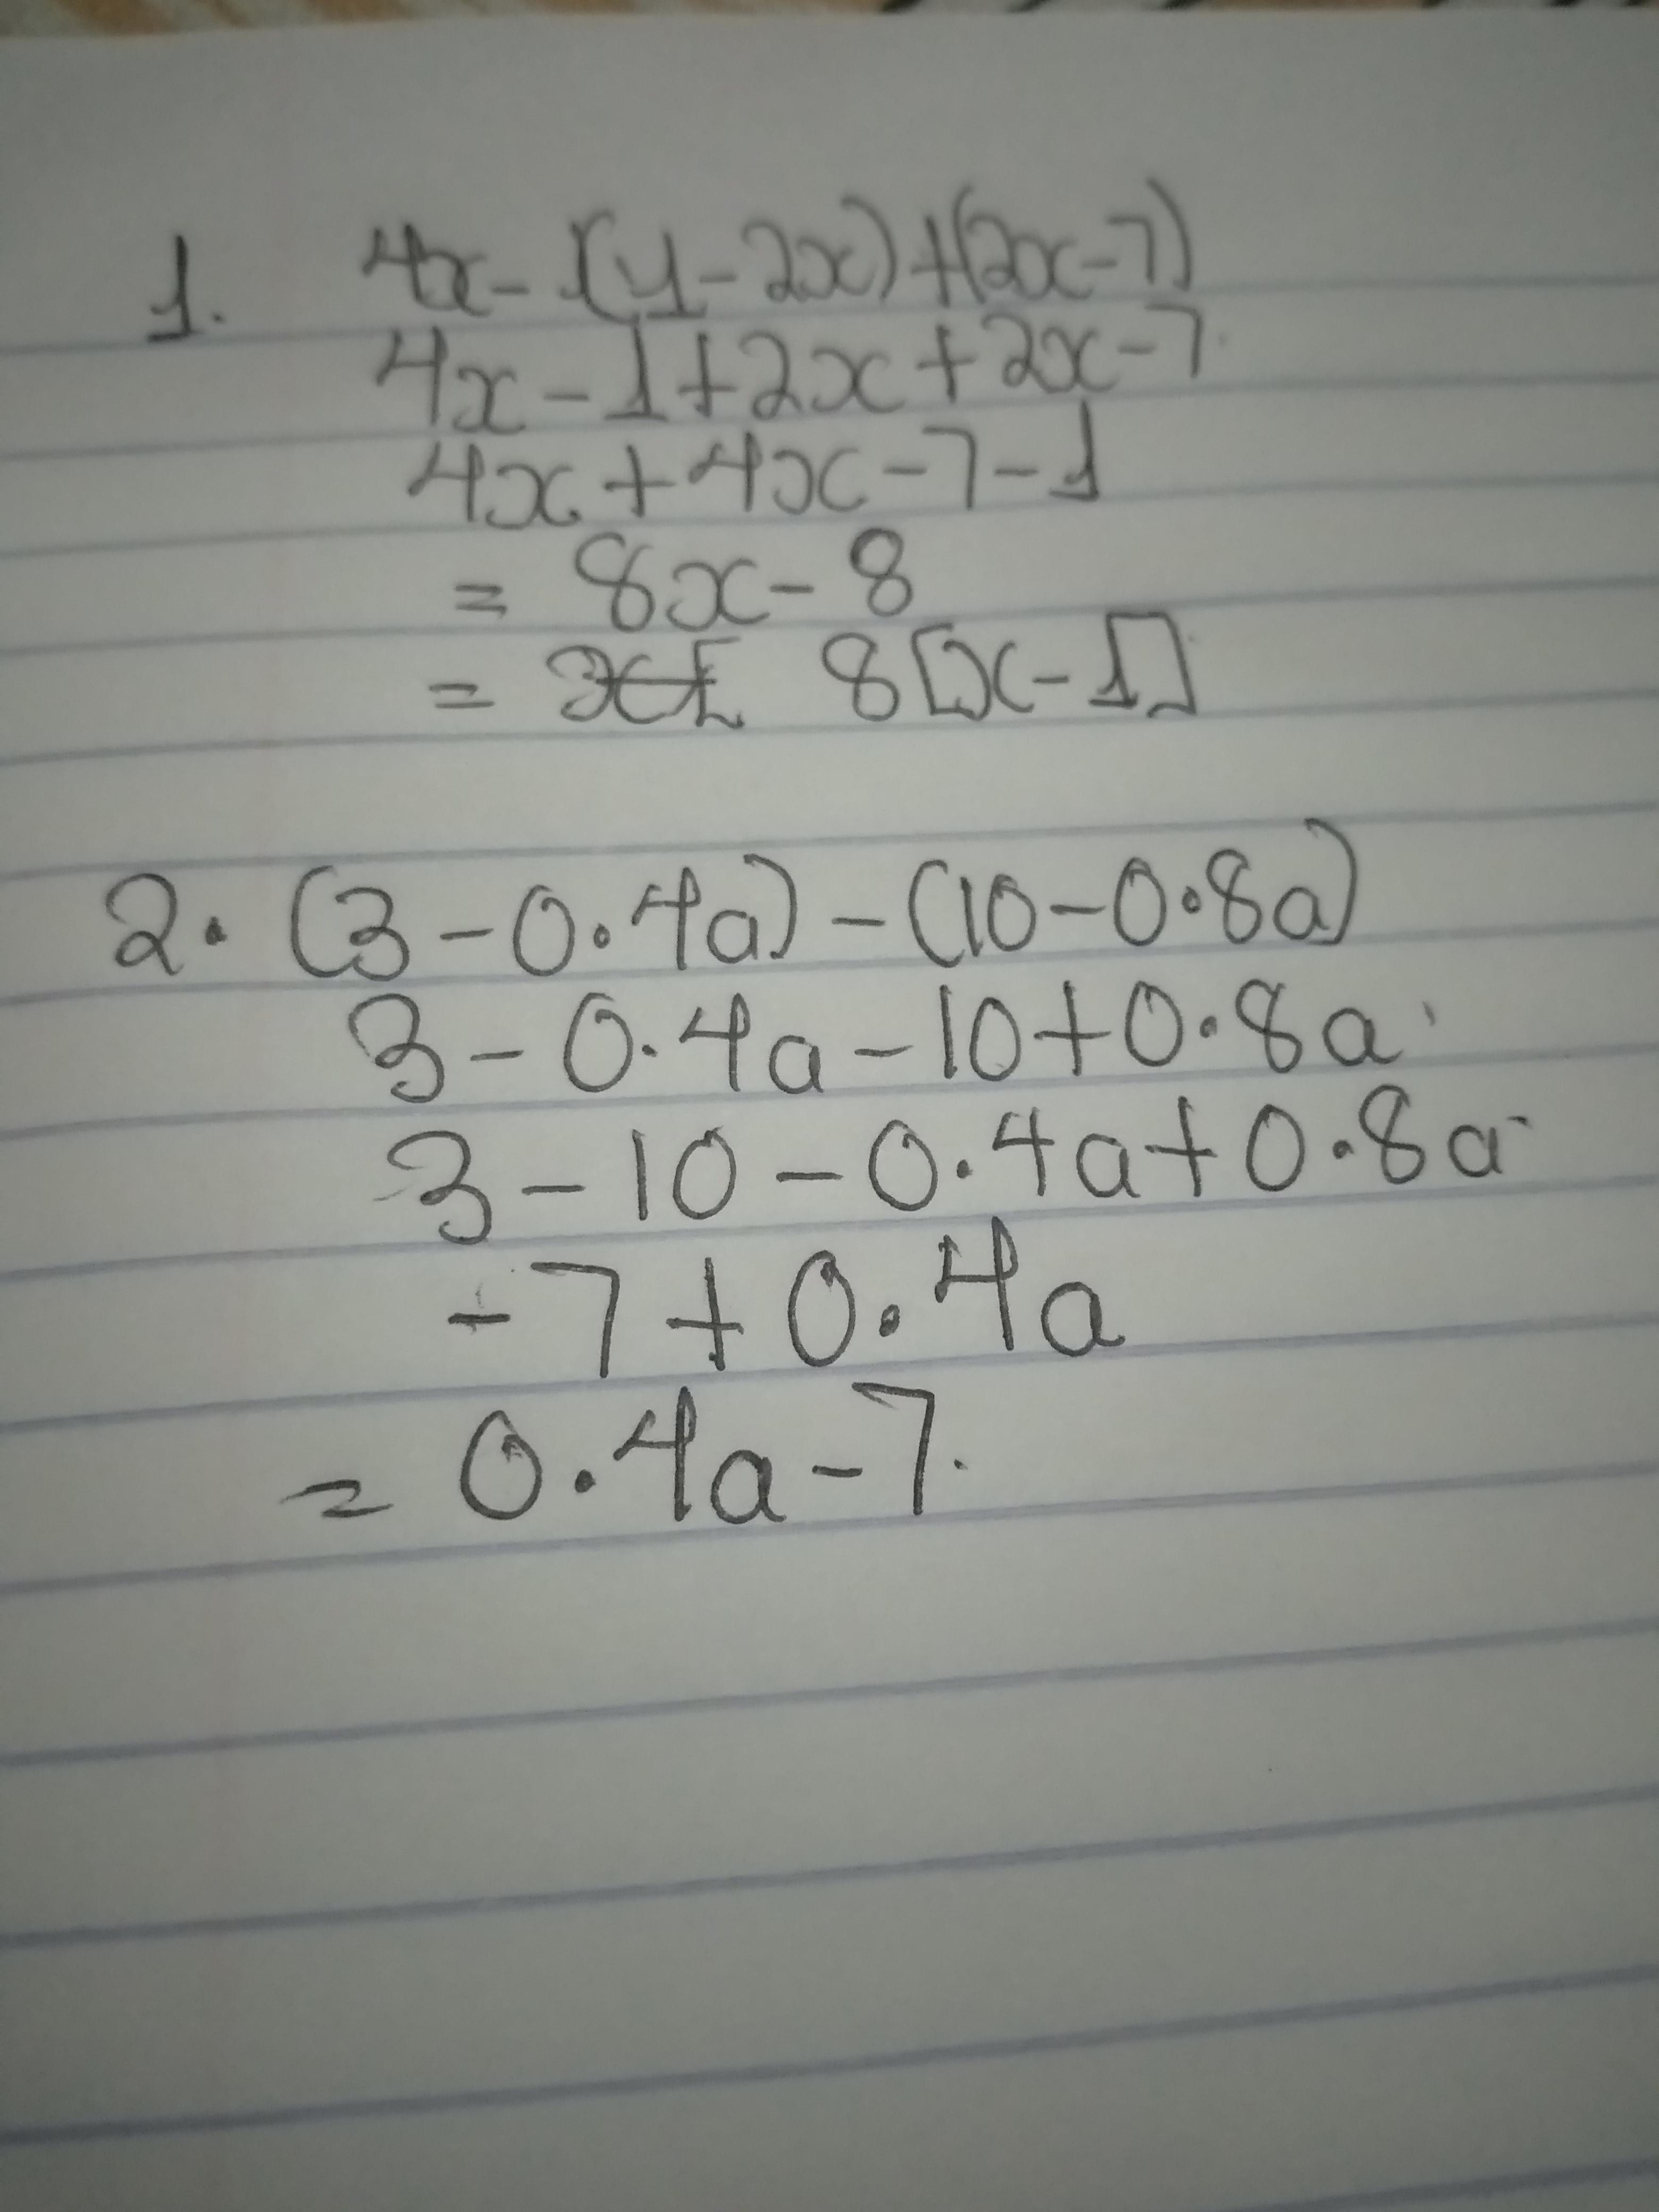 1. 4x-(1-2x)+(2x-7)
4x-1+2x+2x-7
4x+4x-7-1
= 8x-8
= 8[x-1]
2. (3-0.4a)-(10-0.8a)
3-0.4a-10+0.8a
3-10-0.4a+0.8a
-7+0.4a
= 0.4a-7.